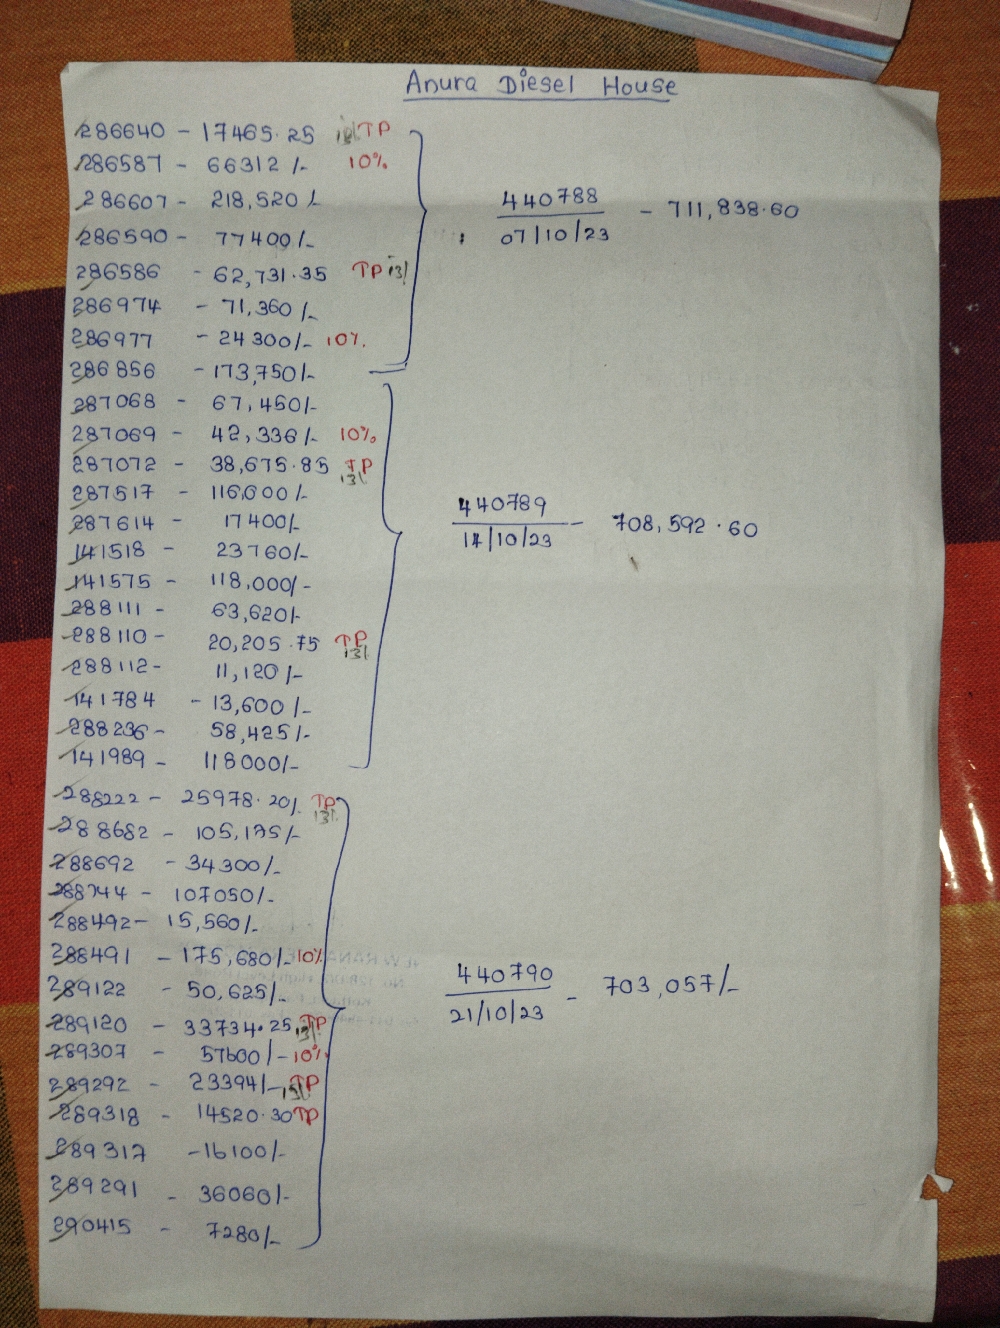 Anura Diesel House
286640 - 17465.25 13% TP
286587 - 66312/- 10%
286607 - 218,520/-
440788 / 07/10/23 - 711,838.60
286590 - 77400/-
286586 - 62,731.35 TP 13%
286974 - 71,360/-
286977 - 24300/- 10%
286856 - 173,750/-
287068 - 67,450/-
287069 - 42,336/- 10%
287072 - 38,675.85 TP 13%
287517 - 116,600/-
440789 / 14/10/23 - 708,592.60
287614 - 17400/-
141518 - 23760/-
141575 - 118,000/-
288111 - 63,620/-
288110 - 20,205.75 TP 13%
288112 - 11,120/-
141784 - 13,600/-
288236 - 58,425/-
141989 - 118000/-
288222 - 25978.20/- TP 13%
288682 - 105,175/-
288692 - 34300/-
288744 - 107050/-
288492 - 15,560/-
288491 - 175,680/- 10%
289122 - 50,625/-
440790 / 21/10/23 - 703,057/-
289120 - 33734.25 13% TP
289307 - 57600/- 10%
289292 - 23394/- 13% TP
289318 - 14520.30 TP
289317 - 16100/-
289291 - 36060/-
290415 - 7280/-